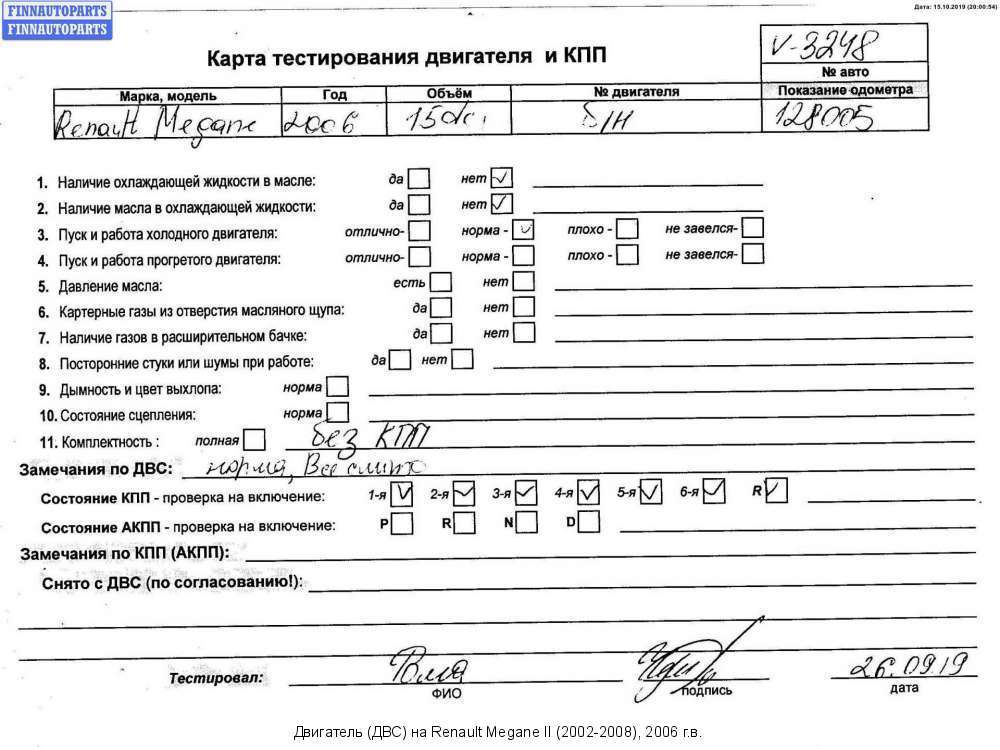 FINNAUTOPARTS
FINNAUTOPARTS
Дата: 15.10.2019 (20:00:54)
Карта тестирования двигателя и КПП
V-3248
№ авто
Марка, модель Год Объём № двигателя Показание одометра
Renault Megane 2006 15dci Б/Н 128005
1. Наличие охлаждающей жидкости в масле: да нет
2. Наличие масла в охлаждающей жидкости: да нет
3. Пуск и работа холодного двигателя: отлично- норма - плохо - не завелся-
4. Пуск и работа прогретого двигателя: отлично- норма - плохо - не завелся-
5. Давление масла: есть нет
6. Картерные газы из отверстия масляного щупа: да нет
7. Наличие газов в расширительном бачке: да нет
8. Посторонние стуки или шумы при работе: да нет
9. Дымность и цвет выхлопа: норма
10. Состояние сцепления: норма
11. Комплектность : полная без КПП
Замечания по ДВС: норма, Все
Состояние КПП - проверка на включение: 1-я 2-я 3-я 4-я 5-я 6-я R
Состояние АКПП - проверка на включение: P R N D
Замечания по КПП (АКПП):
Снято с ДВС (по согласованию!):
Тестировал: 26.09.19
ФИО подпись дата
Двигатель (ДВС) на Renault Megane II (2002-2008), 2006 г.в.